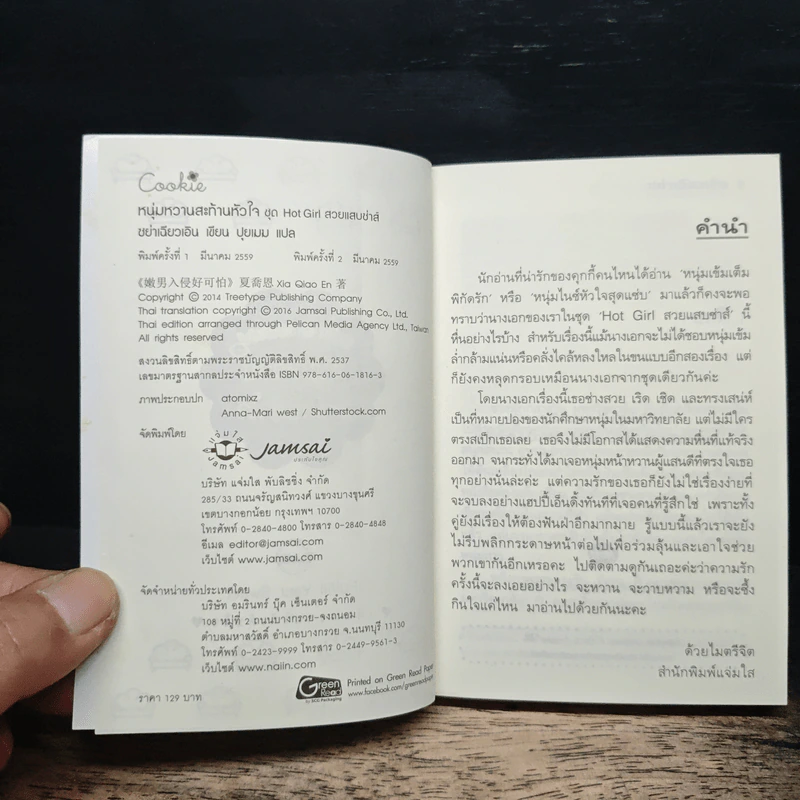 Cookie
หนุ่มหวานสะท้านหัวใจ ชุด Hot Girl สวยแสบซ่าส์
ชย่าเฉียวเอิน เขียน ปุยเมม แปล
พิมพ์ครั้งที่ 1 มีนาคม 2559 พิมพ์ครั้งที่ 2 มีนาคม 2559
《嫩男入侵好可怕》夏喬恩 Xia Qiao En 著
Copyright © 2014 Treetype Publishing Company
Thai translation copyright © 2016 Jamsai Publishing Co., Ltd.
Thai edition arranged through Pelican Media Agency Ltd., Taiwan
All rights reserved
สงวนลิขสิทธิ์ตามพระราชบัญญัติลิขสิทธิ์ พ.ศ. 2537
เลขมาตรฐานสากลประจำหนังสือ ISBN 978-616-06-1816-3
ภาพประกอบปก atomixz
Anna-Mari west / Shutterstock.com
จัดพิมพ์โดย
แจ่มใส
Jamsai
Jamsai
บริษัท แจ่มใส พับลิชชิ่ง จำกัด
285/33 ถนนจรัญสนิทวงศ์ แขวงบางขุนศรี
เขตบางกอกน้อย กรุงเทพฯ 10700
โทรศัพท์ 0-2840-4800 โทรสาร 0-2840-4848
อีเมล editor@jamsai.com
เว็บไซต์ www.jamsai.com
จัดจำหน่ายทั่วประเทศโดย
บริษัท อมรินทร์ บุ๊ค เซ็นเตอร์ จำกัด
108 หมู่ที่ 2 ถนนบางกรวย-จงถนอม
ตำบลมหาสวัสดิ์ อำเภอบางกรวย จ.นนทบุรี 11130
โทรศัพท์ 0-2423-9999 โทรสาร 0-2449-9561-3
เว็บไซต์ www.naiin.com
Green Read
by SCG Packaging
Printed on Green Read Paper
www.facebook.com/greenreadpaper
ราคา 129 บาท
คำนำ
นักอ่านที่น่ารักของคุกกี้คนไหนได้อ่าน 'หนุ่มเข้มเต็ม
พิกัดรัก' หรือ 'หนุ่มไนซ์หัวใจสุดแซ่บ' มาแล้วก็คงจะพอ
ทราบว่านางเอกของเราในชุด 'Hot Girl สวยแสบซ่าส์' นี้
หื่นอย่างไรบ้าง สำหรับเรื่องนี้แม้นางเอกจะไม่ได้ชอบหนุ่มเข้ม
ล่ำกล้ามแน่นหรือคลั่งไคล้หลงใหลในขนแบบอีกสองเรื่อง แต่
ก็ยังคงหลุดกรอบเหมือนนางเอกจากชุดเดียวกันค่ะ
โดยนางเอกเรื่องนี้เธอช่างสวย เริด เชิด และทรงเสน่ห์
เป็นที่หมายปองของนักศึกษาหนุ่มในมหาวิทยาลัย แต่ไม่มีใคร
ตรงสเป็กเธอเลย เธอจึงไม่มีโอกาสได้แสดงความหื่นที่แท้จริง
ออกมา จนกระทั่งได้มาเจอหนุ่มหน้าหวานผู้แสนดีที่ตรงใจเธอ
ทุกอย่างนั่นล่ะค่ะ แต่ความรักของเธอก็ยังไม่ใช่เรื่องง่ายที่
จะจบลงอย่างแฮปปี้เอ็นดิ้งทันทีที่เจอคนที่รู้สึกใช่ เพราะทั้ง
คู่ยังมีเรื่องให้ต้องฟันฝ่าอีกมากมาย รู้แบบนี้แล้วเราจะยัง
ไม่รีบพลิกกระดาษหน้าต่อไปเพื่อร่วมลุ้นและเอาใจช่วย
พวกเขากันอีกเหรอคะ ไปติดตามดูกันเถอะค่ะว่าความรัก
ครั้งนี้จะลงเอยอย่างไร จะหวาน จะวาบหวาม หรือจะซึ้ง
กินใจแค่ไหน มาอ่านไปด้วยกันนะคะ
ด้วยไมตรีจิต
สำนักพิมพ์แจ่มใส